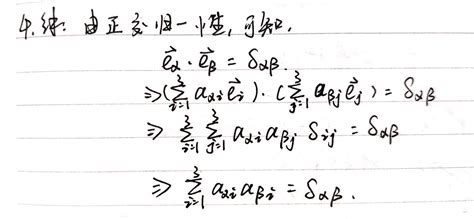 4.解: 由正交归一性, 可知,
$\vec{e}_\alpha \cdot \vec{e}_\beta = \delta_{\alpha\beta}.$
$\Rightarrow (\sum_{i=1}^{3} a_{\alpha i} \vec{e}_i) \cdot (\sum_{j=1}^{3} a_{\beta j} \vec{e}_j) = \delta_{\alpha\beta}$
$\Rightarrow \sum_{i=1}^{3} \sum_{j=1}^{3} a_{\alpha i} a_{\beta j} \delta_{ij} = \delta_{\alpha\beta}$
$\Rightarrow \sum_{i=1}^{3} a_{\alpha i} a_{\beta i} = \delta_{\alpha\beta}.$